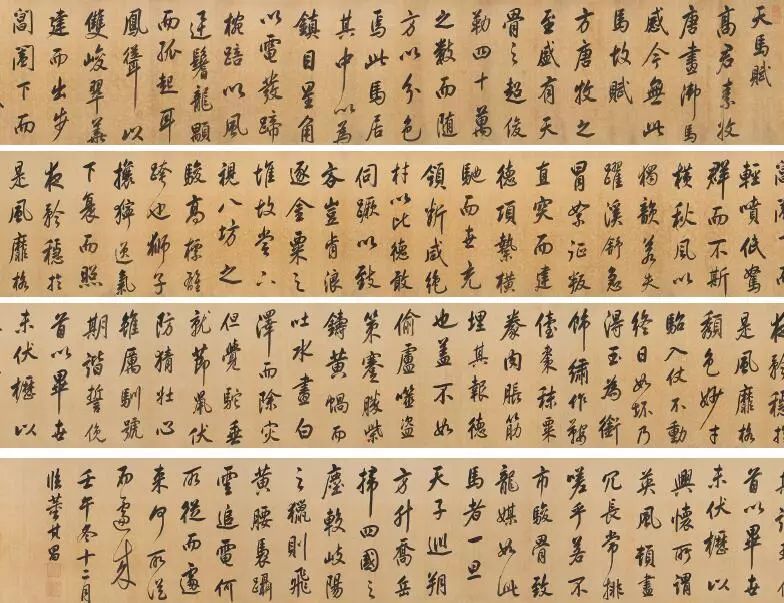 天馬賦
高君素收
唐畫御馬
感今無此
馬故賦
方唐牧之
至盛有天
骨之超俊
勒四十萬
之數而隨
方以分色
焉此馬居
其中以為
鎮目星角
以電發蹄
椀踣以風
迅鬐龍顒
而孤起耳
鳳聳以
雙峻翠華
建而出步
閶闔下而
輕噴低駑
群而不斯
橫秋風以
獨韻若夫
躍溪舒急
冒絮征叛
直突而建
德項縶橫
馳而世充
領斷咸絕
材以比德敢
伺蹶以致
吝豈肯浪
逐金粟之
堆故當下
視八坊之
駿高標雄
跨也獅子
攘獰逸氣
下衰而照
夜矜穩於
是風靡格
是風靡格
頹色妙才
駘入仗不動
終日如坏乃
得玉為銜
飾繡作鞍
棗秣粟
豢肉脹筋
埋其報德
也蓋不如
偷盧噬盜
策蹇勝柴
鑄黃蝸而
吐水畫白
澤而除災
但覺駝垂
就節鼠伏
防猜壯心
雖厲馴號
期諧誓俛
首以畢世
未伏櫪以
首以畢世
未伏櫪以
興懷所謂
英風頓盡
冗長常排
嗟乎若不
市駿骨致
龍媒如此
馬者一旦
天子巡朔
方升喬岳
掃四國之
塵較岐陽
之獵則飛
黃腰褭躡
雲追電何
所從而遽
來何所從
而遽來
壬午冬十二月
臨董其昌